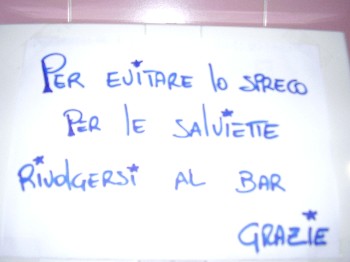 PER EVITARE lo SPRECO
PER lE SALVIETTE
RIVOlGERSI AL BAR
GRAZIE